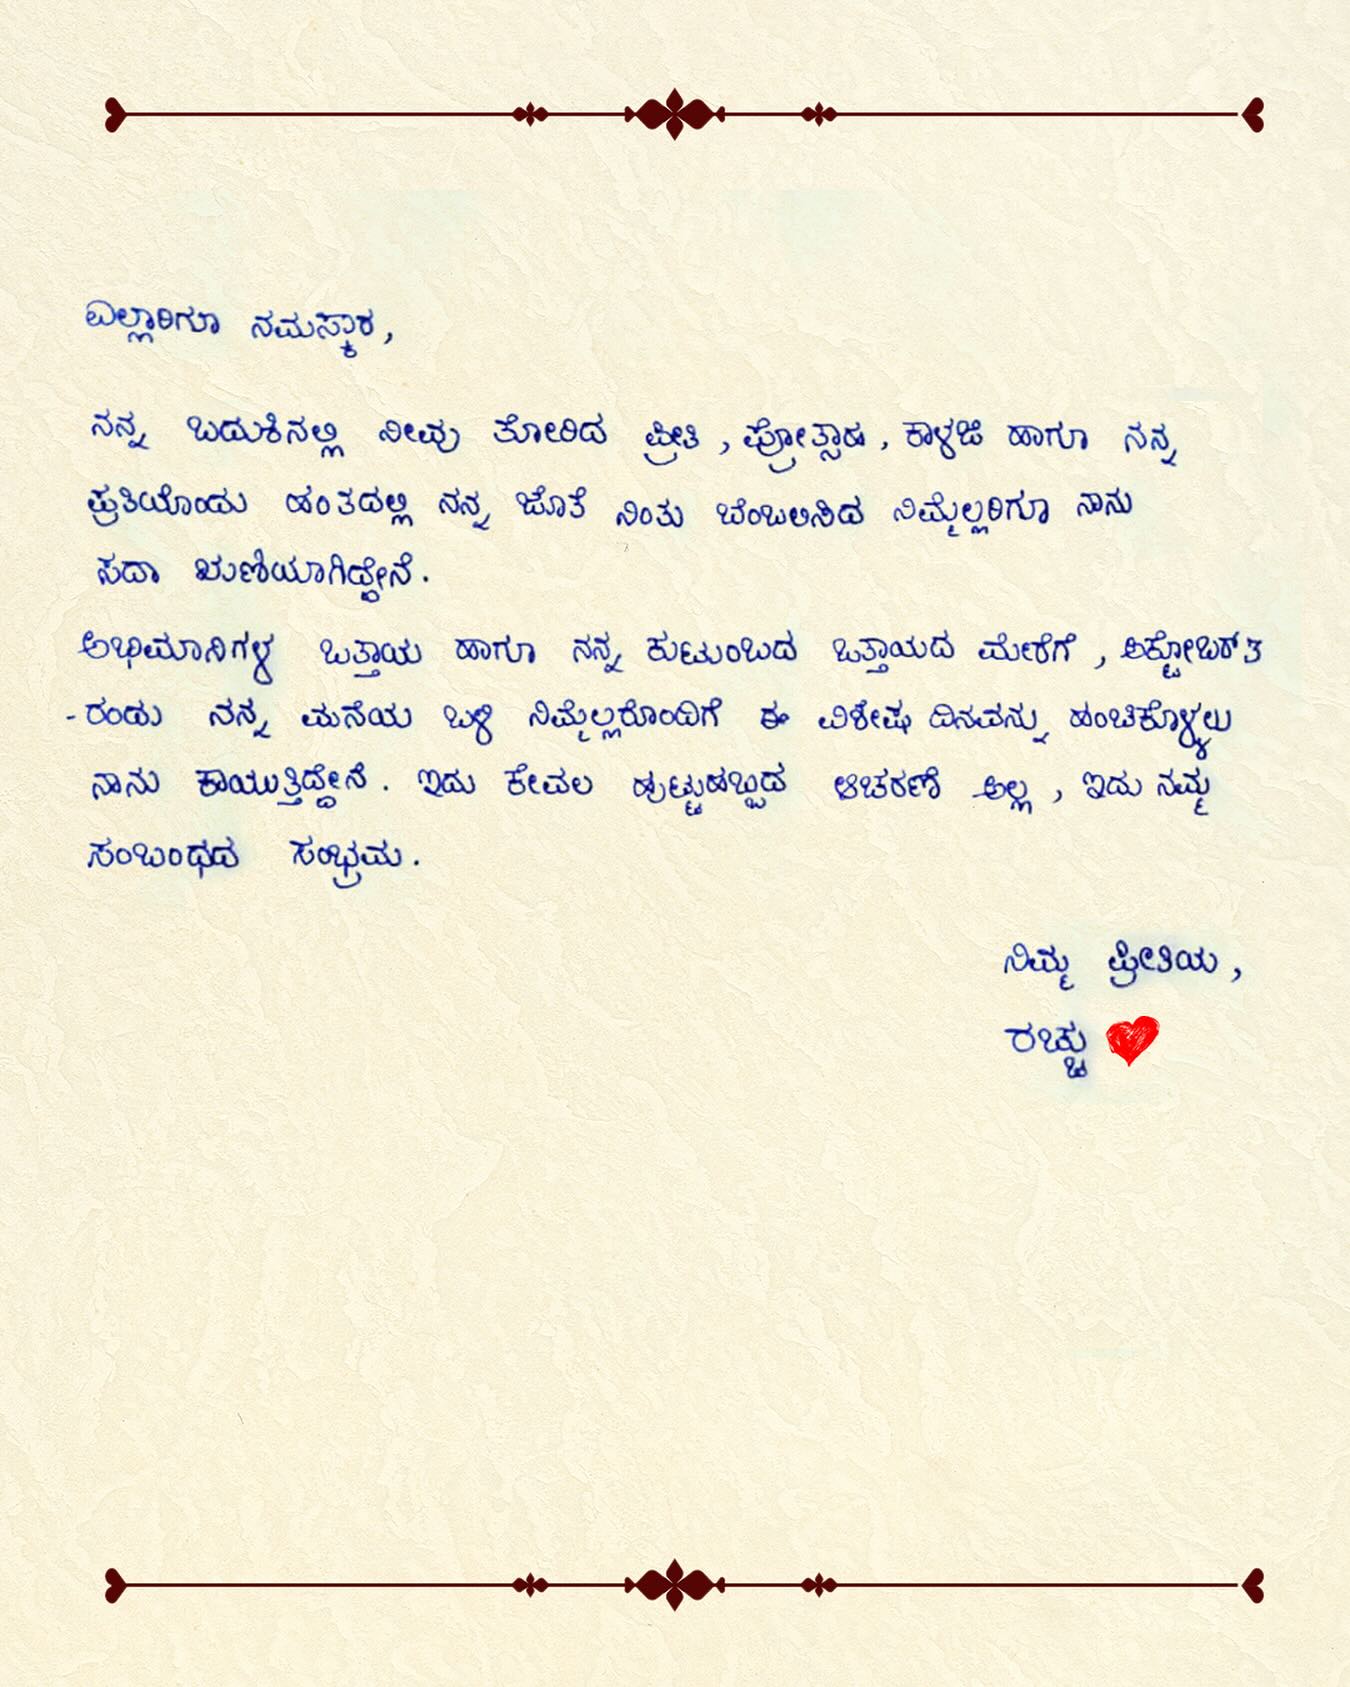 ಎಲ್ಲಾರಿಗೂ ನಮಸ್ಕಾರ,
ನನ್ನ ಬದುಕಿನಲ್ಲಿ ನೀವು ತೋರಿದ ಪ್ರೀತಿ, ಪ್ರೋತ್ಸಾಹ, ಕಾಳಜಿ ಹಾಗೂ ನನ್ನ
ಪ್ರತಿಯೊಂದು ಹಂತದಲ್ಲಿ ನನ್ನ ಜೊತೆ ನಿಂತು ಬೆಂಬಲಿಸಿದ ನಿಮ್ಮೆಲ್ಲರಿಗೂ ನಾನು
ಸದಾ ಋಣಿಯಾಗಿದ್ದೇನೆ.
ಅಭಿಮಾನಿಗಳ ಒತ್ತಾಯ ಹಾಗೂ ನನ್ನ ಕುಟುಂಬದ ಒತ್ತಾಯದ ಮೇರೆಗೆ, ಅಕ್ಟೋಬರ್ 3
-ರಂದು ನನ್ನ ಮನೆಯ ಬಳಿ ನಿಮ್ಮೆಲ್ಲರೊಂದಿಗೆ ಈ ವಿಶೇಷ ದಿನವನ್ನು ಹಂಚಿಕೊಳ್ಳಲು
ನಾನು ಕಾಯುತ್ತಿದ್ದೇನೆ. ಇದು ಕೇವಲ ಹುಟ್ಟುಹಬ್ಬದ ಆಚರಣೆ ಅಲ್ಲ, ಇದು ನಮ್ಮ
ಸಂಬಂಧದ ಸಂಭ್ರಮ.
ನಿಮ್ಮ ಪ್ರೀತಿಯ,
ರಚ್ಚು